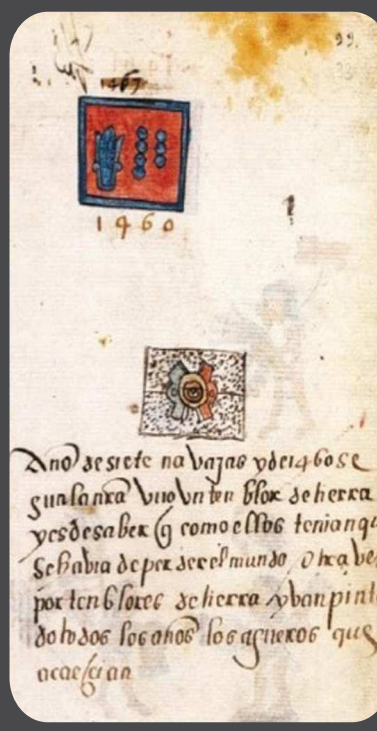 99.
33
1467
1460
Año de siete navajas y de 1460 se
gun la nra vuo vn tenblor de tierra
y es de saber q como ellos tenian q
se havia de perder el mundo otra ve
por tenblores de tierra yvan pint
do todos los años los agueros que
acaecian